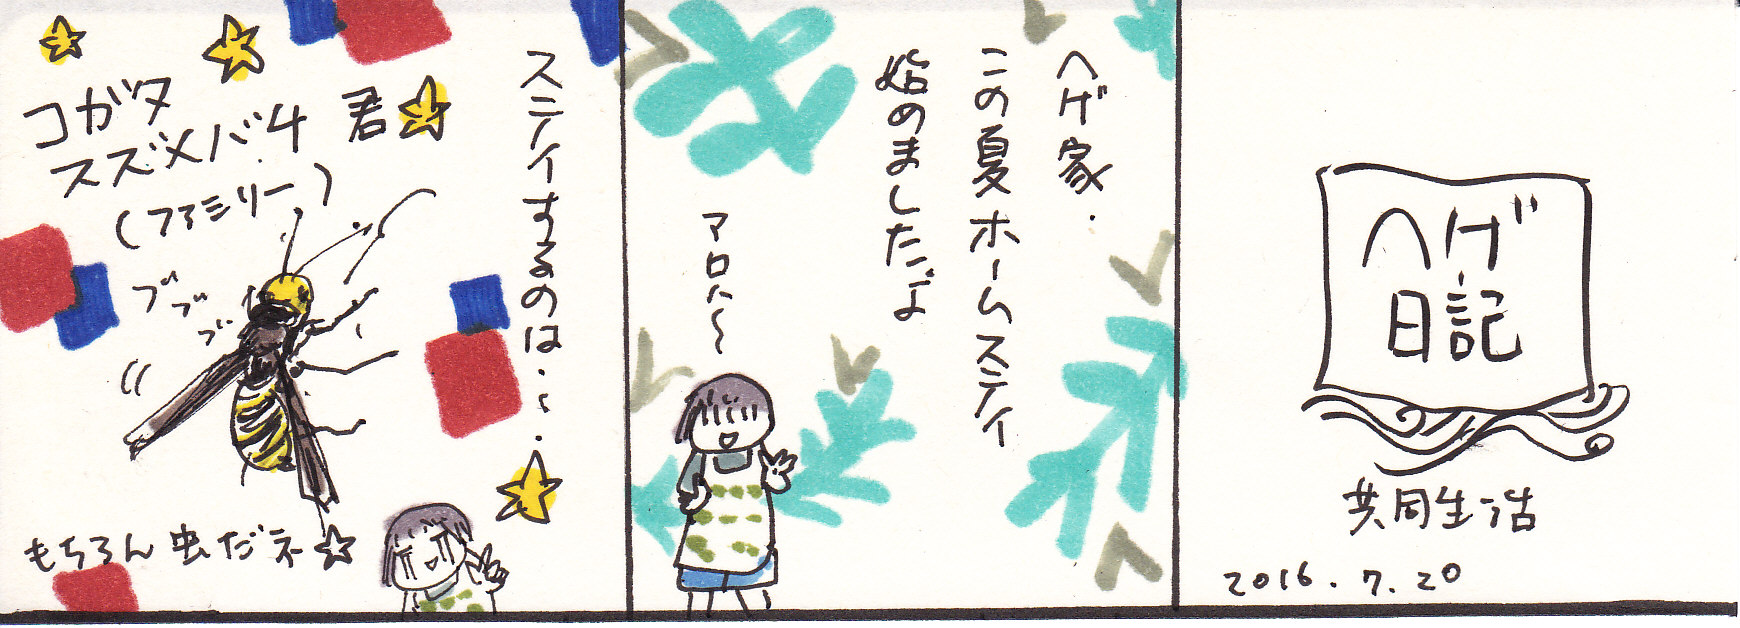 ヘゲ
日記
共同生活
2016.7.20
ヘゲ家.
この夏ホームステイ
始めましたよ
アロハ〜
ステイするのは・・・
コガタ
スズメバチ 君
(ファミリー)
ブブブ
もちろん虫だネ☆